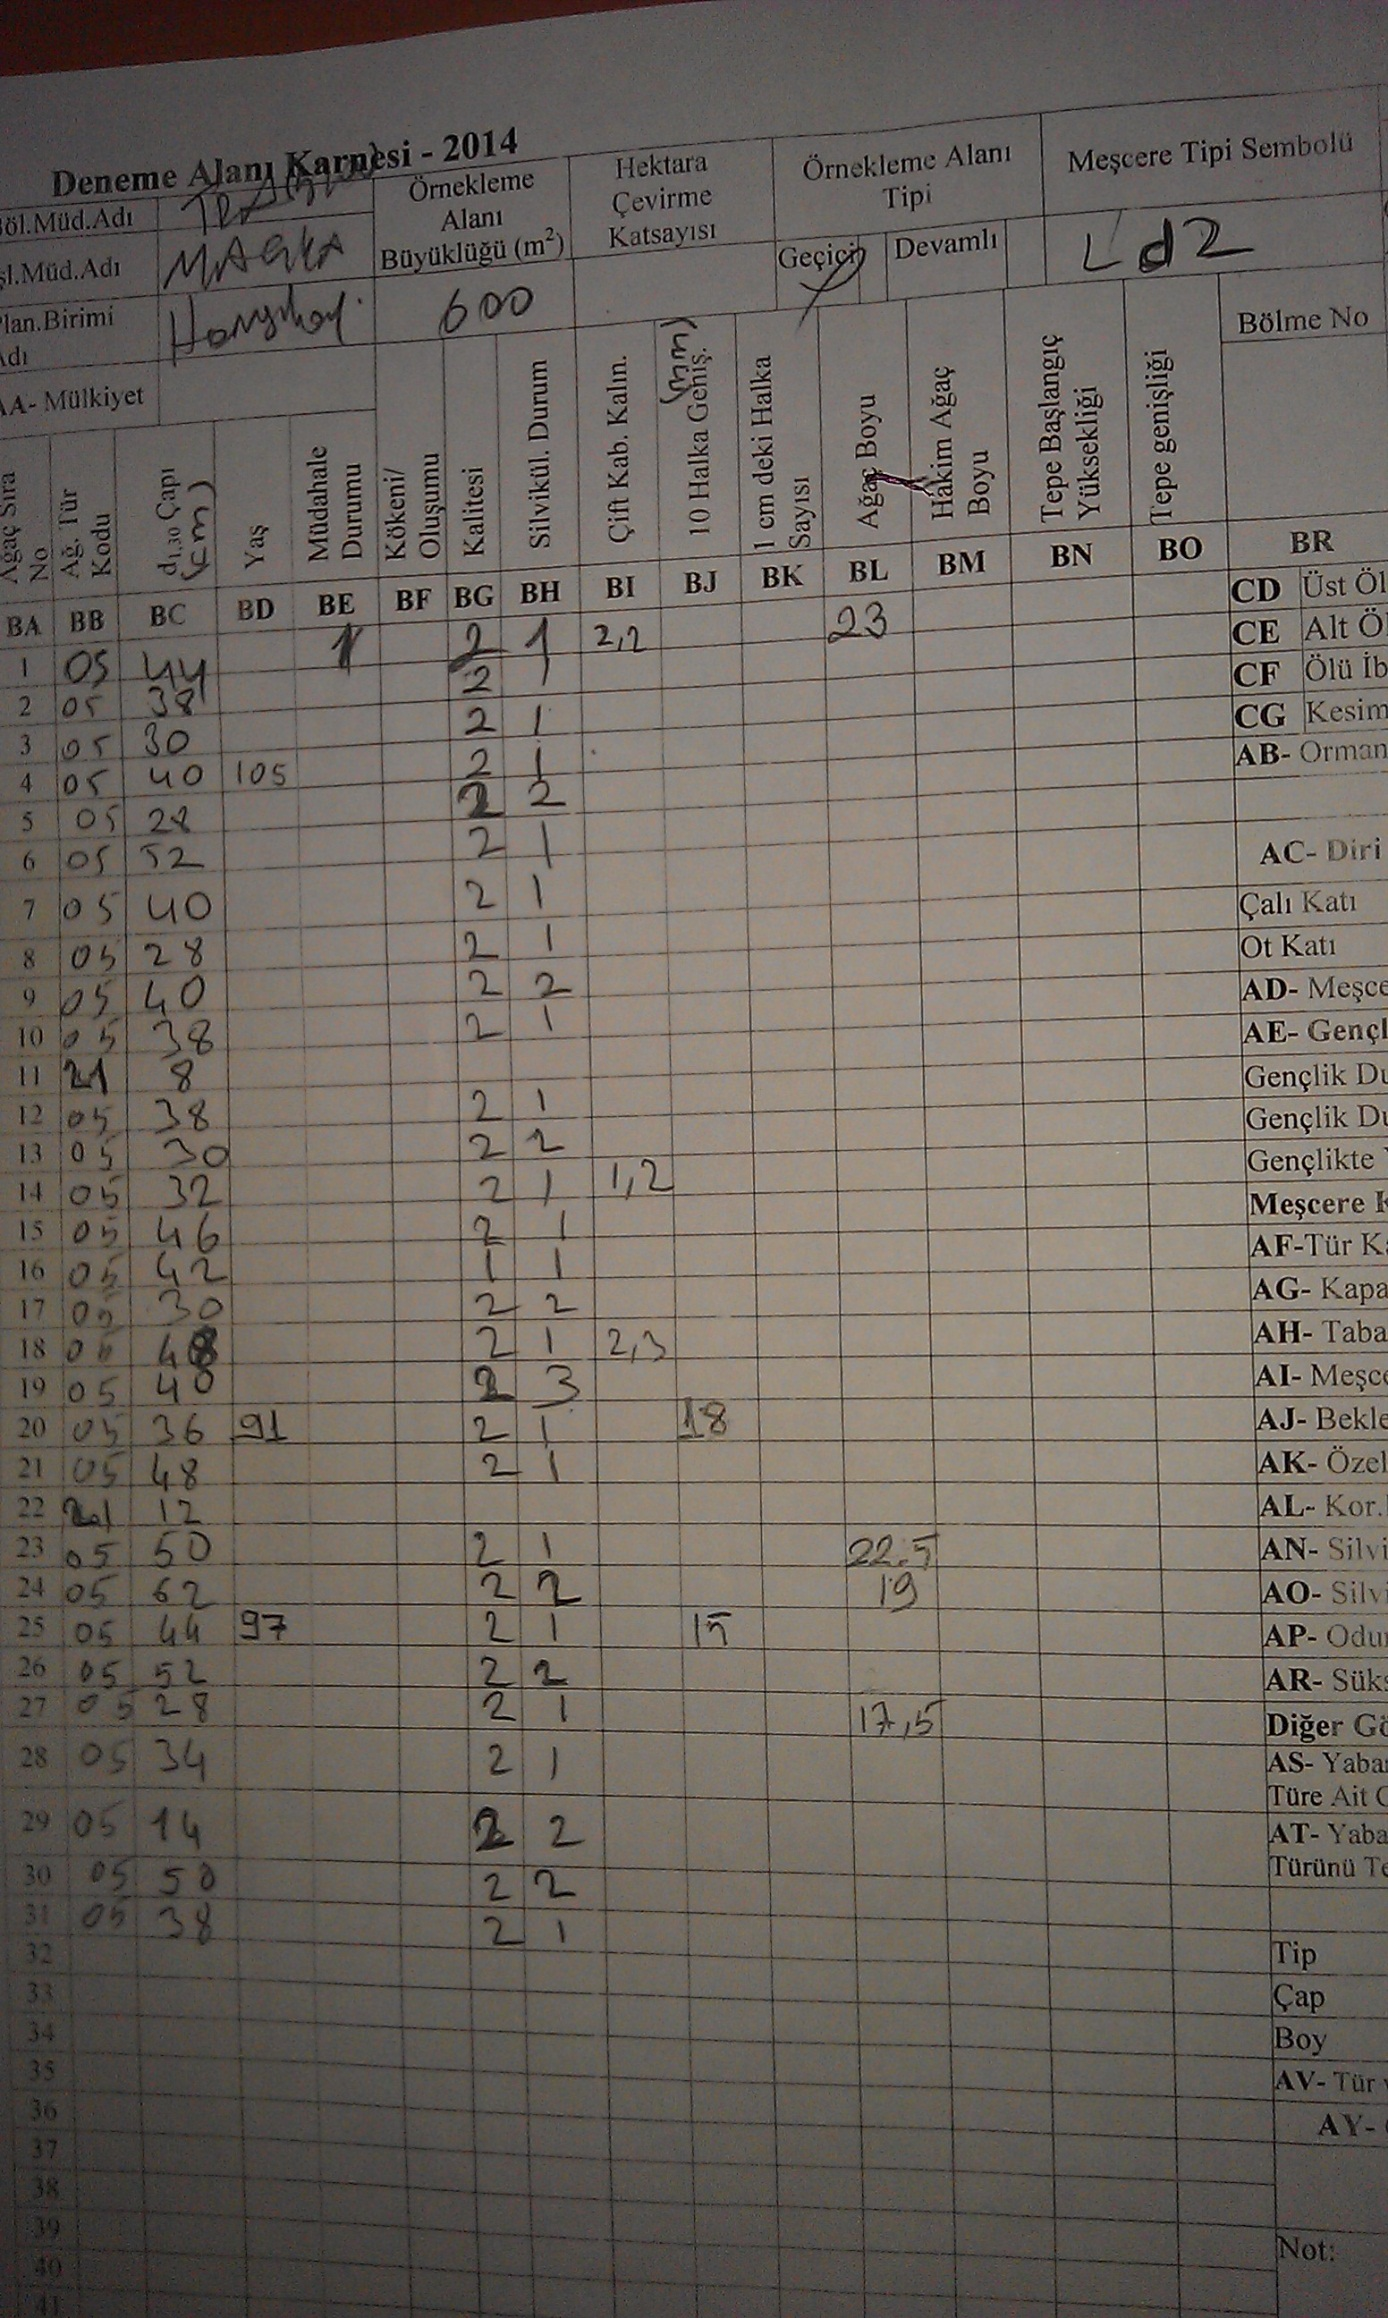 Deneme Alanı Karnesi - 2014
Böl.Müd.Adı
Örnekleme Alanı Büyüklüğü (m²)
Hektara Çevirme Katsayısı
Örnekleme Alanı Tipi
Meşcere Tipi Sembolü
şl.Müd.Adı MAÇKA
Geçici Devamlı
Ld2
Plan.Birimi Adı
600
Bölme No
AA- Mülkiyet
Ağaç Sıra No
Ağ. Tür Kodu
d1,30 Çapı (cm)
Yaş
Müdahale Durumu
Kökeni/ Oluşumu
Kalitesi
Silvikül. Durum
Çift Kab. Kalın.
10 Halka Geniş. (mm)
1 cm deki Halka Sayısı
Ağaç Boyu
Hâkim Ağaç Boyu
Tepe Başlangıç Yüksekliği
Tepe genişliği
BA BB BC BD BE BF BG BH BI BJ BK BL BM BN BO BR
1 05 44 1 2 1 2,2 23
2 05 38 2 1
3 05 30 2 1
4 05 40 105 2 1
5 05 28 2 2
6 05 52 2 1
7 05 40 2 1
8 05 28 2 1
9 05 40 2 2
10 05 38 2 1
11 21 8
12 05 38 2 1
13 05 30 2 2
14 05 32 2 1 1,2
15 05 46 2 1
16 05 42 1 1
17 05 30 2 2
18 05 48 2 1 2,3
19 05 40 2 3
20 05 36 91 2 1 18
21 05 48 2 1
22 12
23 05 50 2 1 22.5
24 05 62 2 2 19
25 05 44 97 2 1 15
26 05 52 2 2
27 05 28 2 1 17,5
28 05 34 2 1
29 05 14 2 2
30 05 50 2 2
31 05 38 2 1
32
33
34
35
36
37
38
39
40
41
CD Üst Öl
CE Alt Öl
CF Ölü İb
CG Kesim
AB- Orman
AC- Diri
Çalı Katı
Ot Katı
AD- Meşce
AE- Gençl
Gençlik Du
Gençlik Du
Gençlikte
Meşcere K
AF-Tür Ka
AG- Kapa
AH- Taba
AI- Meşce
AJ- Bekle
AK- Özel
AL- Kor.
AN- Silvi
AO- Silvi
AP- Odu
AR- Süks
Diğer Gö
AS- Yaba
Türe Ait
AT- Yaba
Türünü Te
Tip
Çap
Boy
AV- Tür
AY-
Not: